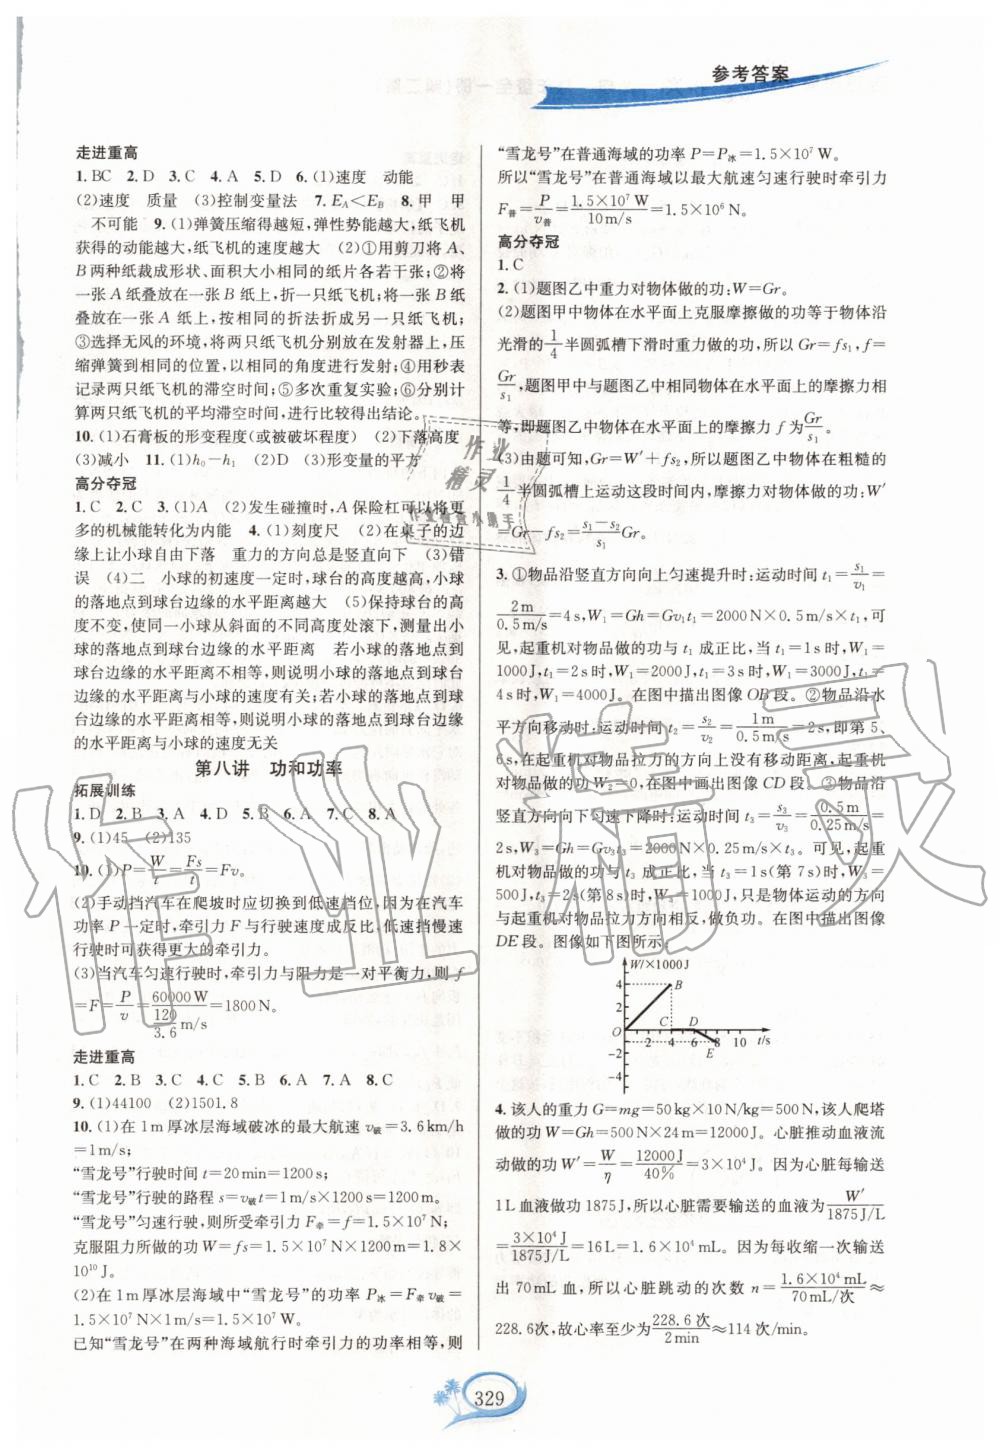 参考答案
走进重高
1. BC　2. D　3. C　4. A　5. D　6. (1)速度　动能
(2)速度　质量　(3)控制变量法　7. E_A＜E_B　8. 甲　甲
不可能　9. (1)弹簧压缩得越短,弹性势能越大,纸飞机
获得的动能越大,纸飞机的速度越大　(2)①用剪刀将 A、
B 两种纸裁成形状、面积大小相同的纸片各若干张;②将
一张 A 纸叠放在一张 B 纸上,折一只纸飞机;③将一张 B
纸叠放在一张 A 纸上,按相同的折法折成另一只纸飞机;
③选择无风的环境,将两只纸飞机分别放在发射器上,压
缩弹簧到相同的位置,以相同的角度进行发射;④用秒表
记录两只纸飞机的滞空时间;⑤多次重复实验;⑥分别计
算两只纸飞机的平均滞空时间,进行比较得出结论。
10. (1)石膏板的形变程度(或被破坏程度)　(2)下落高度
(3)减小　11. (1)h₀－h₁　(2)D　(3)形变量的平方
高分夺冠
1. C　2. C　3. (1)A　(2)发生碰撞时,A 保险杠可以将更
多的机械能转化为内能　4. (1)刻度尺　(2)在桌子的边
缘上让小球自由下落　重力的方向总是竖直向下　(3)错
误　(4)二　小球的初速度一定时,球台的高度越高,小球
的落地点到球台边缘的水平距离越大　(5)保持球台的高
度不变,使同一小球从斜面的不同高度处滚下,测量出小
球的落地点到球台边缘的水平距离　若小球的落地点到
球台边缘的水平距离不相等,则说明小球的落地点到球台
边缘的水平距离与小球的速度有关;若小球的落地点到球
台边缘的水平距离相等,则说明小球的落地点到球台边缘
的水平距离与小球的速度无关
第八讲　功和功率
拓展训练
1. D　2. B　3. A　4. D　5. A　6. A　7. C　8. A
9. (1)45　(2)135
10. (1)P＝W/t＝Fs/t＝Fv。
(2)手动挡汽车在爬坡时应切换到低速挡位,因为在汽车
功率 P 一定时,牵引力 F 与行驶速度成反比,低速挡慢速
行驶时可获得更大的牵引力。
(3)当汽车匀速行驶时,牵引力与阻力是一对平衡力,则 f
＝F＝P/v＝60000 W/(120/3.6 m/s)＝1800 N。
走进重高
1. C　2. B　3. C　4. C　5. B　6. A　7. A　8. C
9. (1)44100　(2)1501.8
10. (1)在 1 m 厚冰层海域破冰的最大航速 v破＝3.6 km/h
＝1 m/s;
“雪龙号”行驶时间 t＝20 min＝1200 s;
“雪龙号”行驶的路程 s＝v破t＝1 m/s×1200 s＝1200 m。
“雪龙号”匀速行驶,则所受牵引力 F牵＝f＝1.5×10⁷ N;
克服阻力所做的功 W＝fs＝1.5×10⁷ N×1200 m＝1.8×
10¹⁰ J。
(2)在 1 m 厚冰层海域中“雪龙号”的功率 P冰＝F牵 v破＝
1.5×10⁷ N×1 m/s＝1.5×10⁷ W。
已知“雪龙号”在两种海域航行时牵引力的功率相等,则
“雪龙号”在普通海域的功率 P＝P冰＝1.5×10⁷ W。
所以“雪龙号”在普通海域以最大航速匀速行驶时牵引力
F普＝P/v普＝1.5×10⁷ W/10 m/s＝1.5×10⁶ N。
高分夺冠
1. C
2. (1)题图乙中重力对物体做的功:W＝Gr。
(2)题图甲中物体在水平面上克服摩擦做的功等于物体沿
光滑的1/4半圆弧槽下滑时重力做的功,所以 Gr＝fs₁,f＝
Gr/s₁,题图甲中与题图乙中相同物体在水平面上的摩擦力相
等,即题图乙中物体在水平面上的摩擦力 f 为Gr/s₁。
(3)由题可知,Gr＝W′＋fs₂,所以题图乙中物体在粗糙的
1/4半圆弧槽上运动这段时间内,摩擦力对物体做的功:W′
＝Gr－fs₂＝(s₁－s₂)/s₁ Gr。
3. ①物品沿竖直方向向上匀速提升时:运动时间 t₁＝s₁/v₁＝
2 m/0.5 m/s＝4 s,W₁＝Gh＝Gv₁t₁＝2000 N×0.5 m/s×t₁,可
见,起重机对物品做的功与 t₁ 成正比,当 t₁＝1 s 时,W₁＝
1000 J,t₁＝2 s 时,W₁＝2000 J,t₁＝3 s 时,W₁＝3000 J,t₁＝
4 s 时,W₁＝4000 J。在图中描出图像 OB 段。②物品沿水
平方向移动时:运动时间 t₂＝s₂/v₂＝1 m/0.5 m/s＝2 s,即第 5、
6 s,在起重机对物品的拉力方向上没有移动距离,起重机
对物品做的功 W₂＝0,在图中画出图像 CD 段。③物品沿
竖直方向向下匀速下降时:运动时间 t₃＝s₃/v₃＝0.5 m/0.25 m/s＝
2 s,W₃＝Gh＝Gv₃t₃＝2000 N×0.25 m/s×t₃。可见,起重
机对物品做的功与 t₃ 成正比,当 t₃＝1 s(第 7 s)时,W₃＝
500 J,t₃＝2 s(第 8 s)时,W₃＝1000 J,只是物体运动的方向
与起重机对物品拉力方向相反,做负功。在图中描出图像
DE 段。图像如下图所示:
W/×1000 J
4 B
2
C D
0 2 4 6 8 10 t/s
−2 E
−4
4. 该人的重力 G＝mg＝50 kg×10 N/kg＝500 N,该人爬塔
做的功 W＝Gh＝500 N×24 m＝12000 J。心脏推动血液流
动做的功 W′＝W/η＝12000 J/40%＝3×10⁴ J。因为心脏每输送
1 L 血液做功 1875 J,所以心脏需要输送的血液为W′/1875 J/L
＝3×10⁴ J/1875 J/L＝16 L＝1.6×10⁴ mL。因为每收缩一次输送
出 70 mL 血,所以心脏跳动的次数 n＝1.6×10⁴ mL/70 mL/次≈
228.6 次,故心率至少为228.6 次/2 min≈114 次/min。
329
作业精灵